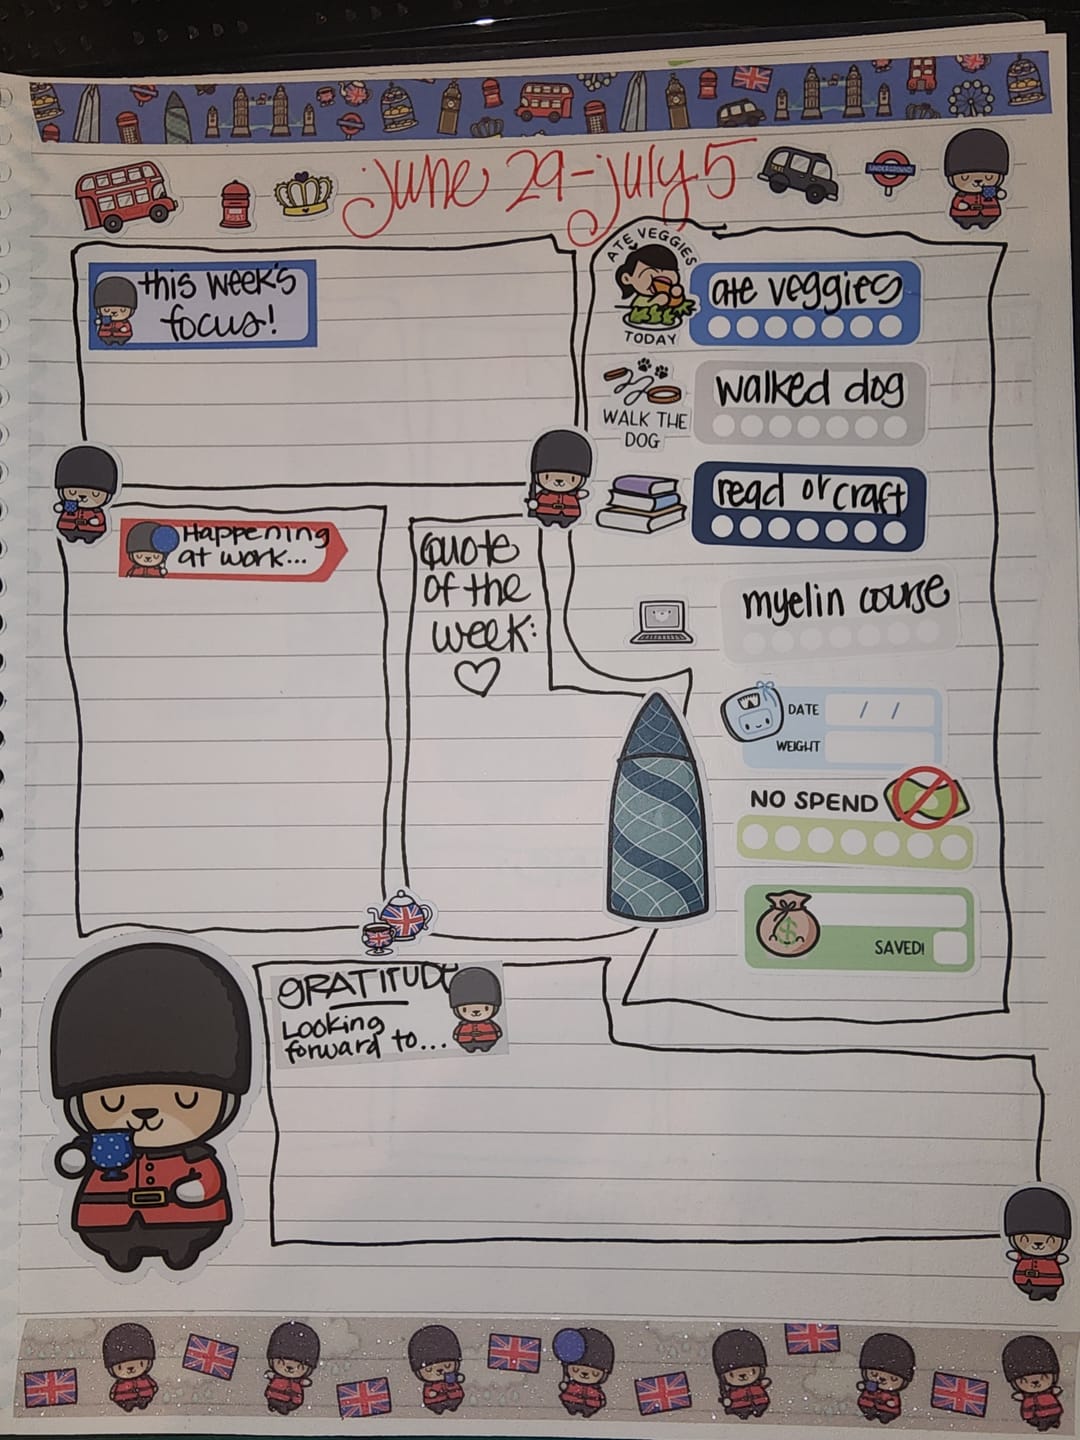 june 29-july 5
POST
UNDERGROUND
this week's
focus!
ATE VEGGIES
TODAY
ate veggies
WALK THE
DOG
walked dog
read or craft
Happening
at work...
Quote
of the
week:
myelin course
DATE / /
WEIGHT
NO SPEND
$
SAVED!
GRATITUDE
Looking
forward to...